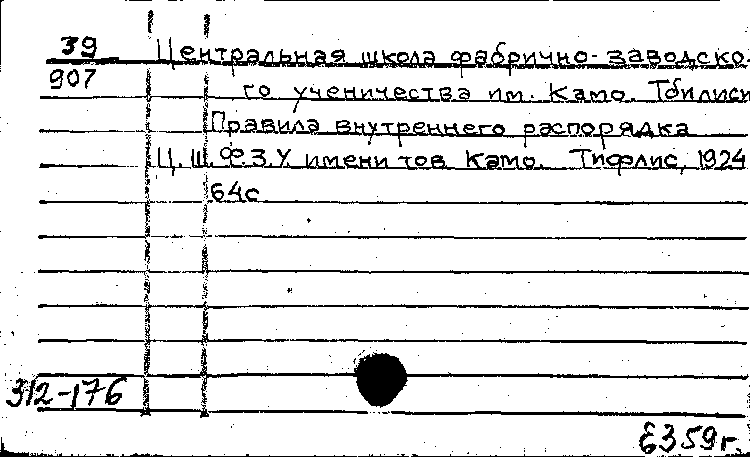 39 Центральная школа фабрично-заводско-
907 го ученичества им. Камо. Тбилиси
Правила внутреннего распорядка
Ц.Ш.Ф.З.У. имени тов Камо. Тифлис, 1924
64с
312-176
Е359г.